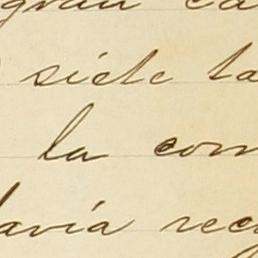 gran ca
siete ta
la com
davia rec